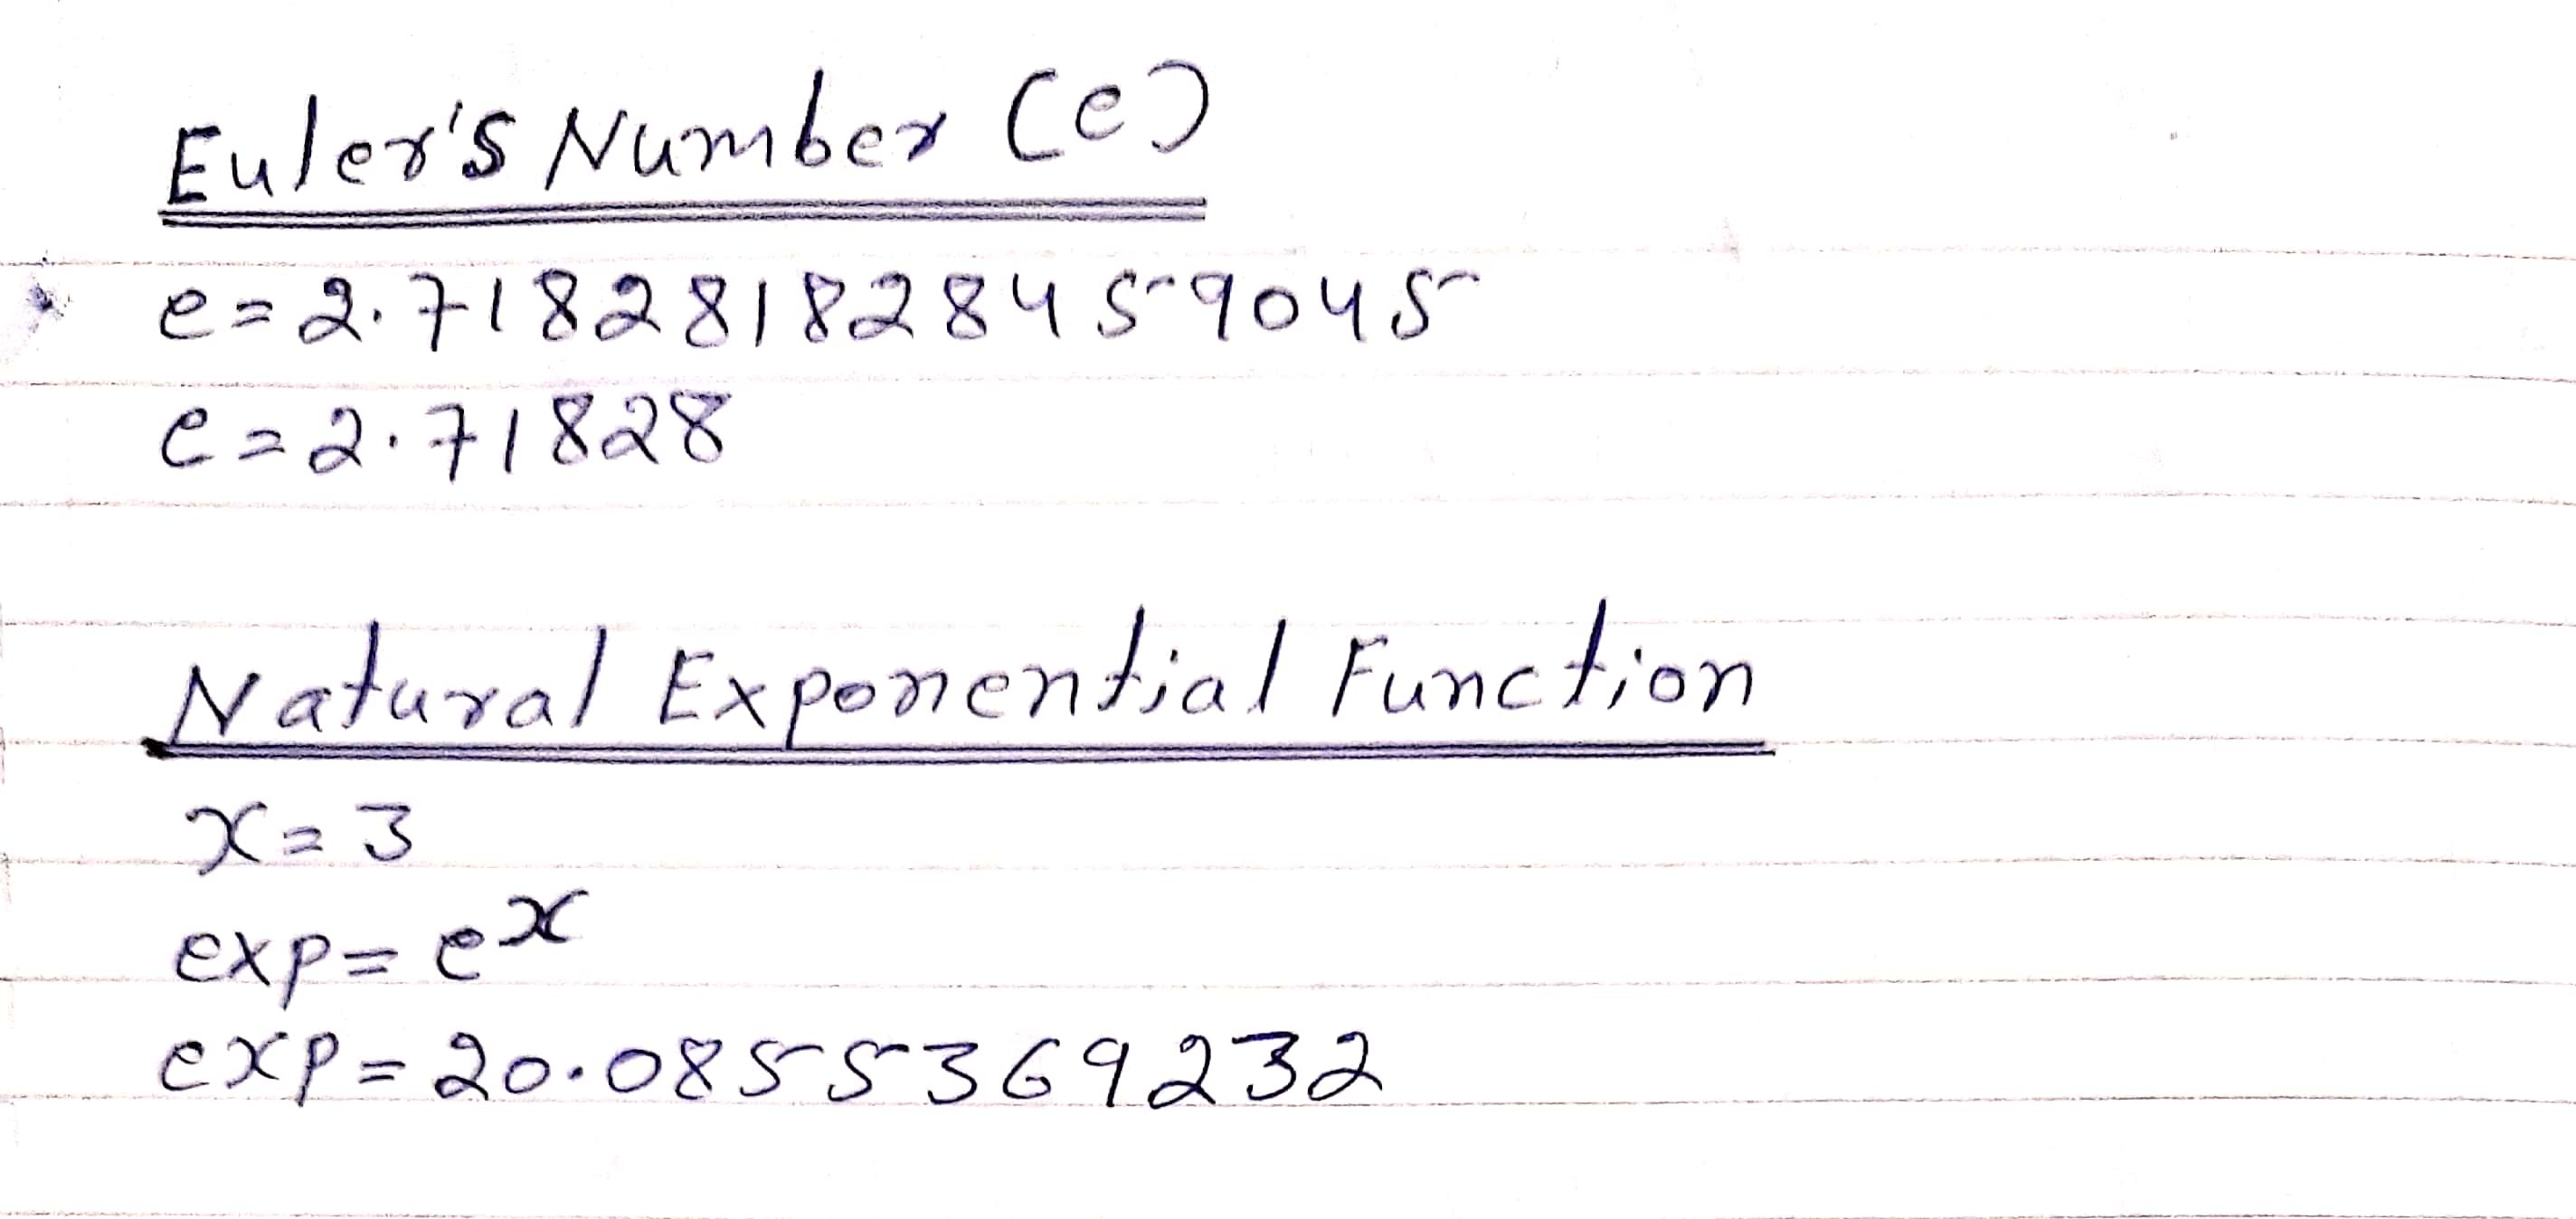 Euler's Number (e)
e=2.718281828459045
e=2.71828
Natural Exponential Function
x=3
exp=e^x
exp=20.0855369232